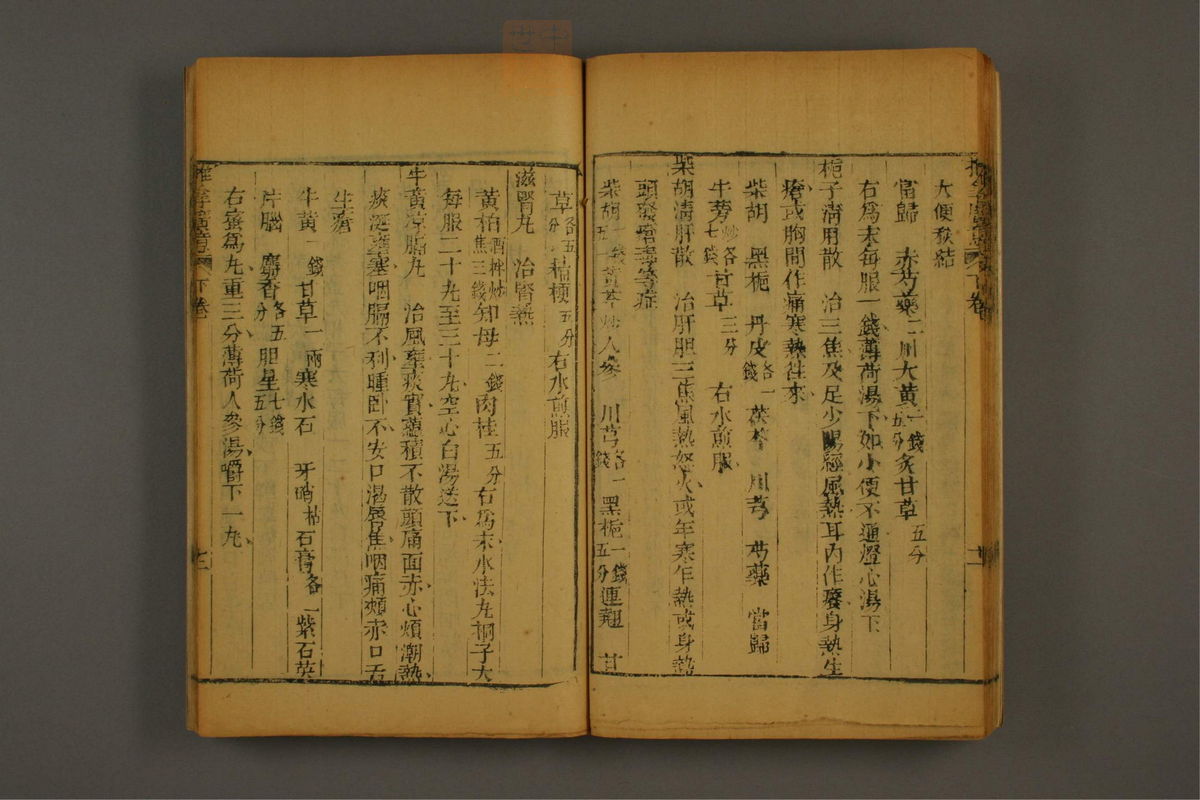 大便秘結
當歸 赤芍藥二川大黃一錢五分炙甘草五分
右爲末每服一錢薄荷湯下如小便不通燈心湯下
梔子清用散 治三焦及足少陽經風熱耳內作癢身熱生
瘡或胸間作痛寒熱往來
柴胡 黑梔 丹皮各一錢茯苓 川芎 芍藥 當歸
牛蒡炒各七錢甘草三分 右水煎服
柴胡清肝散 治肝胆三焦風熱怒火或年寒乍熱或身熱
頭發瘡毒等症
柴胡 人參 川芎各一錢黑梔一錢五分連翹 甘
草各五分桔梗五分右水煎服
滋腎丸 治腎熱
黃柏酒拌炒焦三錢知母二錢肉桂五分右爲末水法丸桐子大
每服二十丸至三十丸空心白湯送下
牛黃凉膈丸 治風壅痰實蘊積不散頭痛面赤心煩潮熱
痰涎壅塞咽膈不利睡卧不安口渴唇焦咽痛頰赤口舌
生瘡
牛黃一錢甘草一兩寒水石 牙硝枯石膏各一紫石英
片腦 麝香各五分胆星七錢五分
右蜜爲丸重三分薄荷人參湯嚼下一丸
下卷
下卷